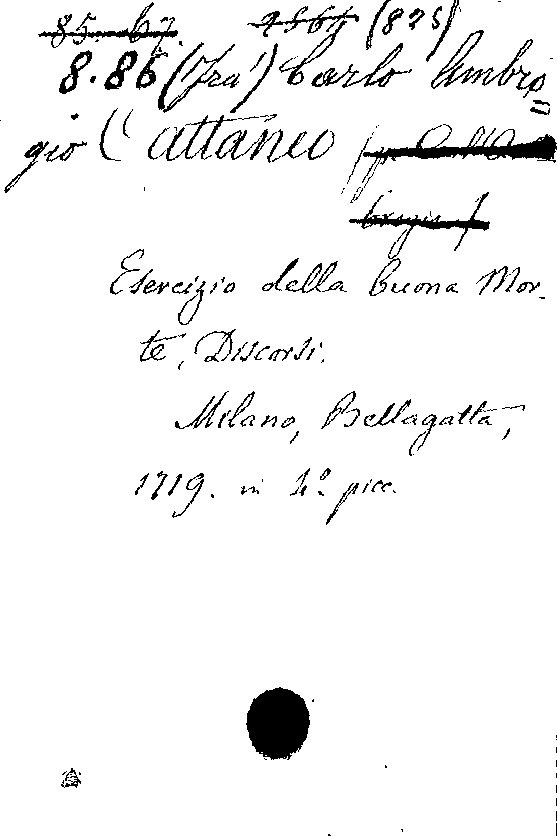 85. 67. 4564 (825)
8.86 (Fra') Carlo Ambro=
gio Cattaneo
Esercizio della buona Mor-
te, Discorsi.
Milano, Bellagatta,
1719. in 4º picc.